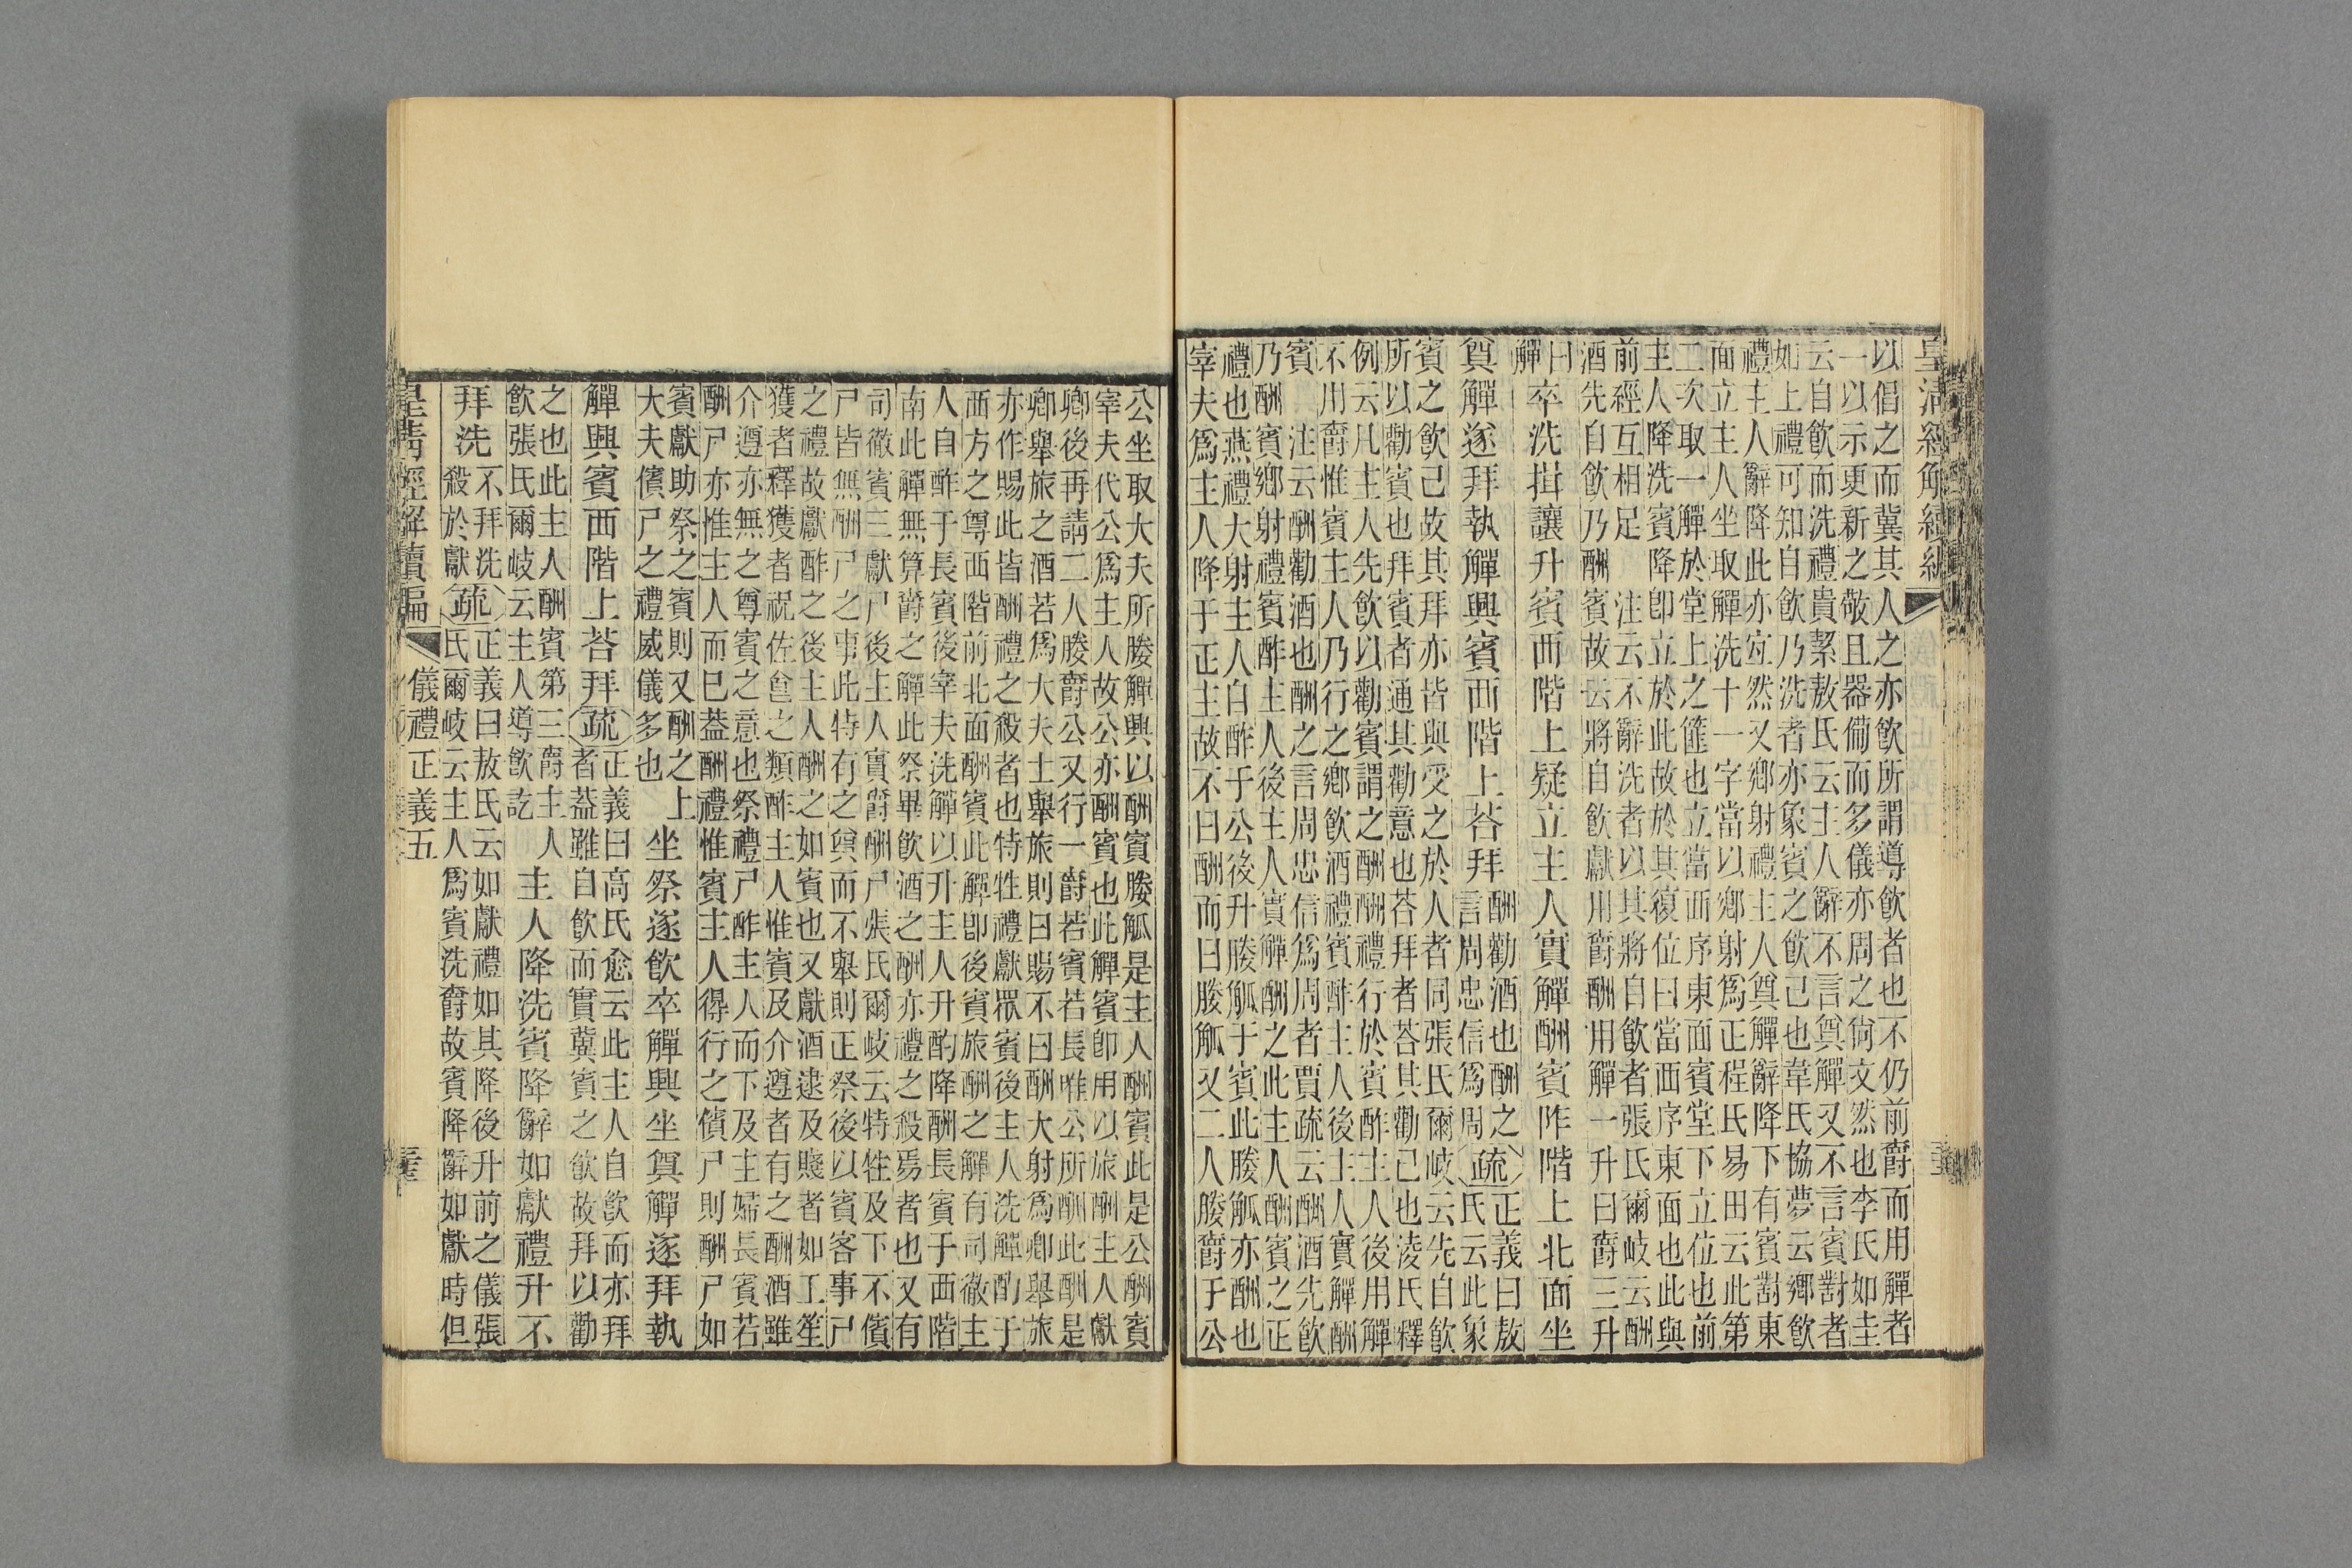 皇清經解續編
以倡之而冀其人之亦飲所謂導飲者也不仍前爵而用觶者
一以示更新之敬且器備而多儀亦周之尙文然也李氏如圭
云自飲而洗禮貴絜敖氏云主人辭不言奠觶又不言賓對者
如上禮可知自飲乃洗者亦象賓之飲己也韋氏協夢云鄉飲
禮主人辭降此亦宜然又鄉射禮主人奠觶辭降下有賓對東
面立主人坐取觶洗十一字當以鄉射爲正程氏易田云此第
二次取一觶於堂上之篚也立當西序東面賓堂下立位也前
主人降洗賓降卽立於此故於其復位曰當西序東面也此與
前經互相足　注云不辭洗者以其將自飲者張氏爾岐云酬
酒先自飲乃酬賓故云將自飲獻用爵酬用觶一升曰爵三升
曰
觶
卒洗揖讓升賓西階上疑立主人實觶酬賓阼階上北面坐
奠觶遂拜執觶興賓西階上荅拜
酬勸酒也酬之
言周忠信爲周
疏
正義曰敖
氏云此象
賓之飲己故其拜亦皆與受之於人者同張氏爾岐云先自飲
所以勸賓也拜賓者通其勸意也荅拜者荅其勸己也淩氏釋
例云凡主人先飲以勸賓謂之酬酬禮行於賓酢主人後用觶
不用爵惟賓主人乃行之鄉飲酒禮賓酢主人後主人實觶酬
賓　注云酬勸酒也酬之言周忠信爲周者賈疏云酬酒先飲
乃酬賓鄉射禮賓酢主人後主人實觶酬之此主人酬賓之正
禮也燕禮大射主人自酢于公後升媵觚于賓此媵觚亦酬也
宰夫爲主人降于正主故不曰酬而曰媵觚又二人媵爵于公
公坐取大夫所媵觶興以酬賓媵觚是主人酬賓此是公酬賓
宰夫代公爲主人故公亦酬賓也此觶賓卽用以旅酬主人獻
卿後再請二人媵爵公又行一爵若賓若長唯公所酬此酬是
卿舉旅之酒若爲大夫士舉旅則曰賜不曰酬大射爲卿舉旅
亦作賜此皆酬禮之殺者也特牲禮獻眾賓後主人洗觶酌于
西方之尊西階前北面酬賓此觶卽後賓旅酬之觶有司徹主
人自酢于長賓後宰夫洗觶以升主人升酌降酬長賓于西階
南此觶無算爵之觶此祭畢飲酒之酬亦禮之殺焉者也又有
司徹賓三獻尸後主人實爵酬尸張氏爾岐云特牲及下不儐
尸皆無酬尸之事此特有之奠而不舉則正祭後以賓客事尸
之禮故獻酢之後主人酬之如賓也又獻酒逮及賤者如工笙
獲者釋獲者祝佐食之類酢主人惟賓及介遵者有之酬酒雖
介遵亦無之尊賓之意也祭禮尸酢主人而下及主婦長賓若
酬尸亦惟主人而已蓋酬禮惟賓主人得行之儐尸則酬尸如
賓獻助祭之賓則又酬之上
大夫儐尸之禮威儀多也
坐祭遂飲卒觶興坐奠觶遂拜執
觶興賓西階上荅拜
疏
正義曰高氏愈云此主人自飲而亦拜
者蓋雖自飲而實冀賓之飲故拜以勸
之也此主人酬賓第三爵主人
飲張氏爾岐云主人導飲訖
主人降洗賓降辭如獻禮升不
拜洗
不拜洗
殺於獻
疏
正義曰敖氏云如獻禮如其降後升前之儀張
氏爾岐云主人爲賓洗爵故賓降辭如獻時但
皇清經解續編
儀禮正義五